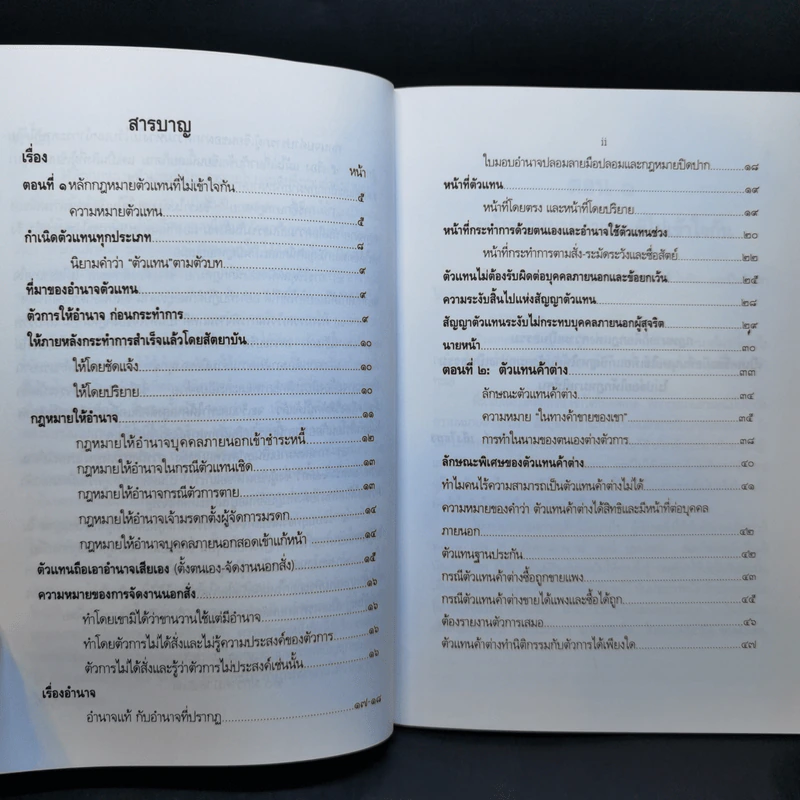 สารบาญ
เรื่อง
หน้า
ตอนที่ ๑ หลักกฎหมายตัวแทนที่ไม่เข้าใจกัน ๕
ความหมายตัวแทน ๕
กำเนิดตัวแทนทุกประเภท ๘
นิยามคำว่า "ตัวแทน"ตามตัวบท ๙
ที่มาของอำนาจตัวแทน ๙
ตัวการให้อำนาจ ก่อนกระทำการ ๙
ให้ภายหลังกระทำการสำเร็จแล้วโดยสัตยาบัน ๑๐
ให้โดยชัดแจ้ง ๑๐
ให้โดยปริยาย ๑๐
กฎหมายให้อำนาจ ๑๑
กฎหมายให้อำนาจบุคคลภายนอกเข้าชำระหนี้ ๑๒
กฎหมายให้อำนาจในกรณีตัวแทนเชิด ๑๓
กฎหมายให้อำนาจกรณีตัวการตาย ๑๓
กฎหมายให้อำนาจเจ้ามรดกตั้งผู้จัดการมรดก ๑๔
กฎหมายให้อำนาจบุคคลภายนอกสอดเข้าแก้หน้า ๑๔
ตัวแทนถือเอาอำนาจเสียเอง (ตั้งตนเอง-จัดงานนอกสั่ง) ๑๕
ความหมายของการจัดงานนอกสั่ง ๑๖
ทำโดยเขามิได้ว่าขานวานใช้แต่มีอำนาจ ๑๖
ทำโดยตัวการไม่ได้สั่งและไม่รู้ความประสงค์ของตัวการ ๑๖
ตัวการไม่ได้สั่งและรู้ว่าตัวการไม่ประสงค์เช่นนั้น ๑๖
เรื่องอำนาจ
อำนาจแท้ กับอำนาจที่ปรากฏ ๑๗-๑๘
ii
ใบมอบอำนาจปลอมลายมือปลอมและกฎหมายปิดปาก ๑๘
หน้าที่ตัวแทน ๑๙
หน้าที่โดยตรง และหน้าที่โดยปริยาย ๑๙
หน้าที่กระทำการด้วยตนเองและอำนาจใช้ตัวแทนช่วง ๒๐
หน้าที่กระทำการตามสั่ง-ระมัดระวังและซื่อสัตย์ ๒๒
ตัวแทนไม่ต้องรับผิดต่อบุคคลภายนอกและข้อยกเว้น ๒๕
ความระงับสิ้นไปแห่งสัญญาตัวแทน ๒๘
สัญญาตัวแทนระงับไม่กระทบบุคคลภายนอกผู้สุจริต ๒๙
นายหน้า ๓๐
ตอนที่ ๒: ตัวแทนค้าต่าง ๓๓
ลักษณะตัวแทนค้าต่าง ๓๔
ความหมาย "ในทางค้าขายของเขา" ๓๕
การทำในนามของตนเองต่างตัวการ ๓๘
ลักษณะพิเศษของตัวแทนค้าต่าง ๔๐
ทำไมคนไร้ความสามารถเป็นตัวแทนค้าต่างไม่ได้ ๔๑
ความหมายของคำว่า ตัวแทนค้าต่างได้สิทธิและมีหน้าที่ต่อบุคคล
ภายนอก ๔๒
ตัวแทนฐานประกัน ๔๒
กรณีตัวแทนค้าต่างซื้อถูกขายแพง ๔๓
กรณีตัวแทนค้าต่างขายได้แพงและซื้อได้ถูก ๔๕
ต้องรายงานตัวการเสมอ ๔๖
ตัวแทนค้าต่างทำนิติกรรมกับตัวการได้เพียงใด ๔๗